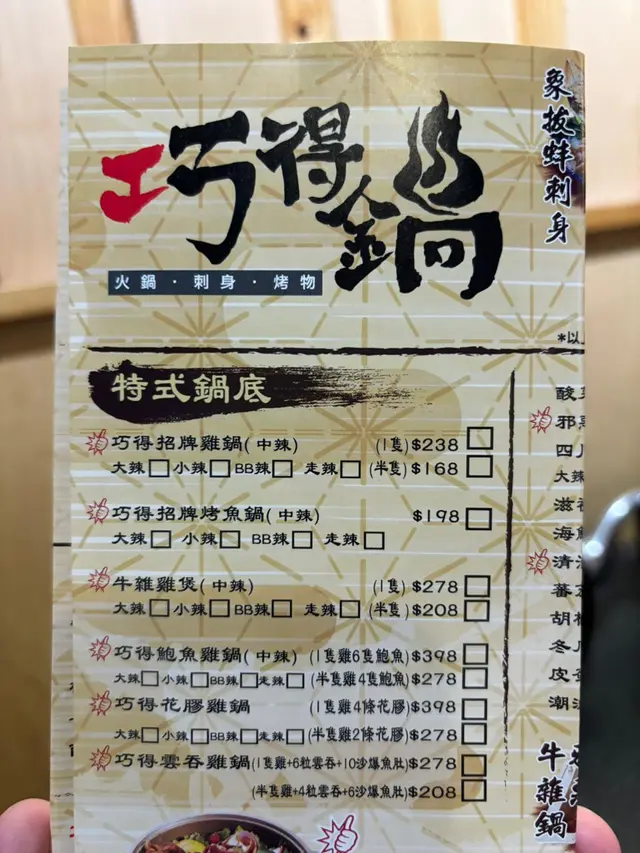 巧得鍋
火鍋·刺身·烤物
象拔蚌刺身
*以
特式鍋底
巧得招牌雞鍋(中辣) (1隻)$238
大辣 小辣 BB辣 走辣 (半隻)$168
巧得招牌烤魚鍋(中辣) $198
大辣 小辣 BB辣 走辣
牛雜雞煲(中辣) (1隻)$278
大辣 小辣 BB辣 走辣 (半隻)$208
巧得鮑魚雞鍋(中辣) (1隻雞6隻鮑魚)$398
大辣 小辣 BB辣 走辣 (半隻雞4隻鮑魚)$278
巧得花膠雞鍋 (1隻雞4條花膠)$398
大辣 小辣 BB辣 走辣 (半隻雞2條花膠)$278
巧得雲吞雞鍋(1隻雞+6粒雲吞+10沙爆魚肚)$278
(半隻雞+4粒雲吞+6沙爆魚肚)$208
酸
邪
四
大辣
滋
海
清
蕃
胡
冬
皮
潮
牛雜鍋